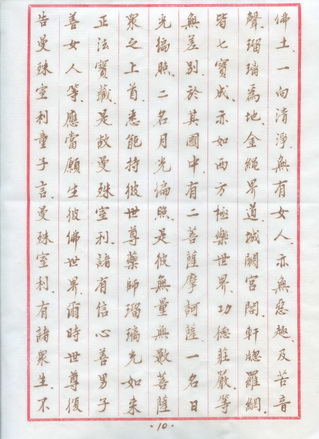 佛土一向清淨無有女人亦無惡趣及苦音
聲瑠璃為地金繩界道城闕宮閣軒窗羅網
皆七寶成亦如西方極樂世界功德莊嚴等
無差別於其國中有二菩薩摩訶薩一名日
光徧照二名月光徧照是彼無量無數菩薩
眾之上首悉能持彼世尊藥師瑠璃光如來
正法寶藏是故曼殊室利諸有信心善男子
善女人等應當願生彼佛世界爾時世尊復
告曼殊室利童子言曼殊室利有諸眾生不
·10·